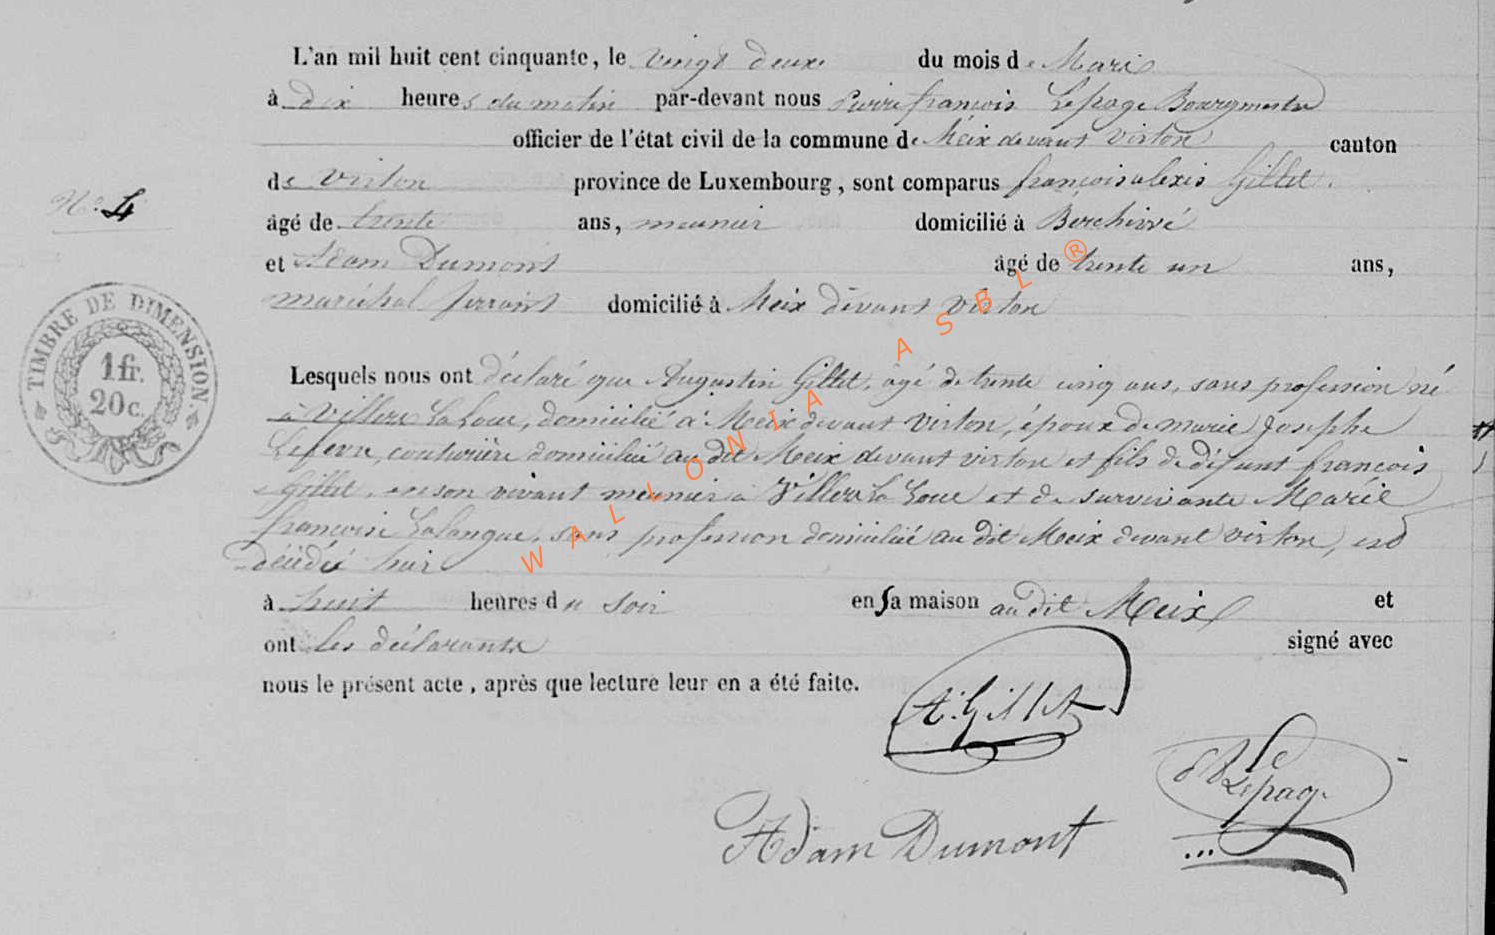 L'an mil huit cent cinquante, le vingt deux du mois de Mars
à dix heures du matin par-devant nous Pierre françois Lepage Bourgmestre
officier de l'état civil de la commune de Meix devant virton canton
de virton province de Luxembourg, sont comparus françois alexis Gillet.
N° 4
âgé de trente ans, meunier domicilié à Berchivé
et Adam Dumont âgé de trente un ans,
maréchal ferrant domicilié à Meix devant virton
TIMBRE DE DIMENSION
1 fr.
20 c.
Lesquels nous ont déclaré que Augustin Gillet, âgé de trente cinq ans, sans profession né
à Villers La Loue, domicilié à Meix devant virton, époux de marie Josephe
Lefevre, couturière domiciliée au dit Meix devant virton et fils de défunt françois
gillet, en son vivant meunier à Villers la Loue et de survivante Marie
françoise Lalangue, sans profession domiciliée au dit Meix devant virton, est
décédé hier
à huit heures du soir en sa maison au dit Meix et
ont les déclarants signé avec
nous le présent acte, après que lecture leur en a été faite.
A. Gillet
Lepage
Adam Dumont
WALLONIA ASBL ®